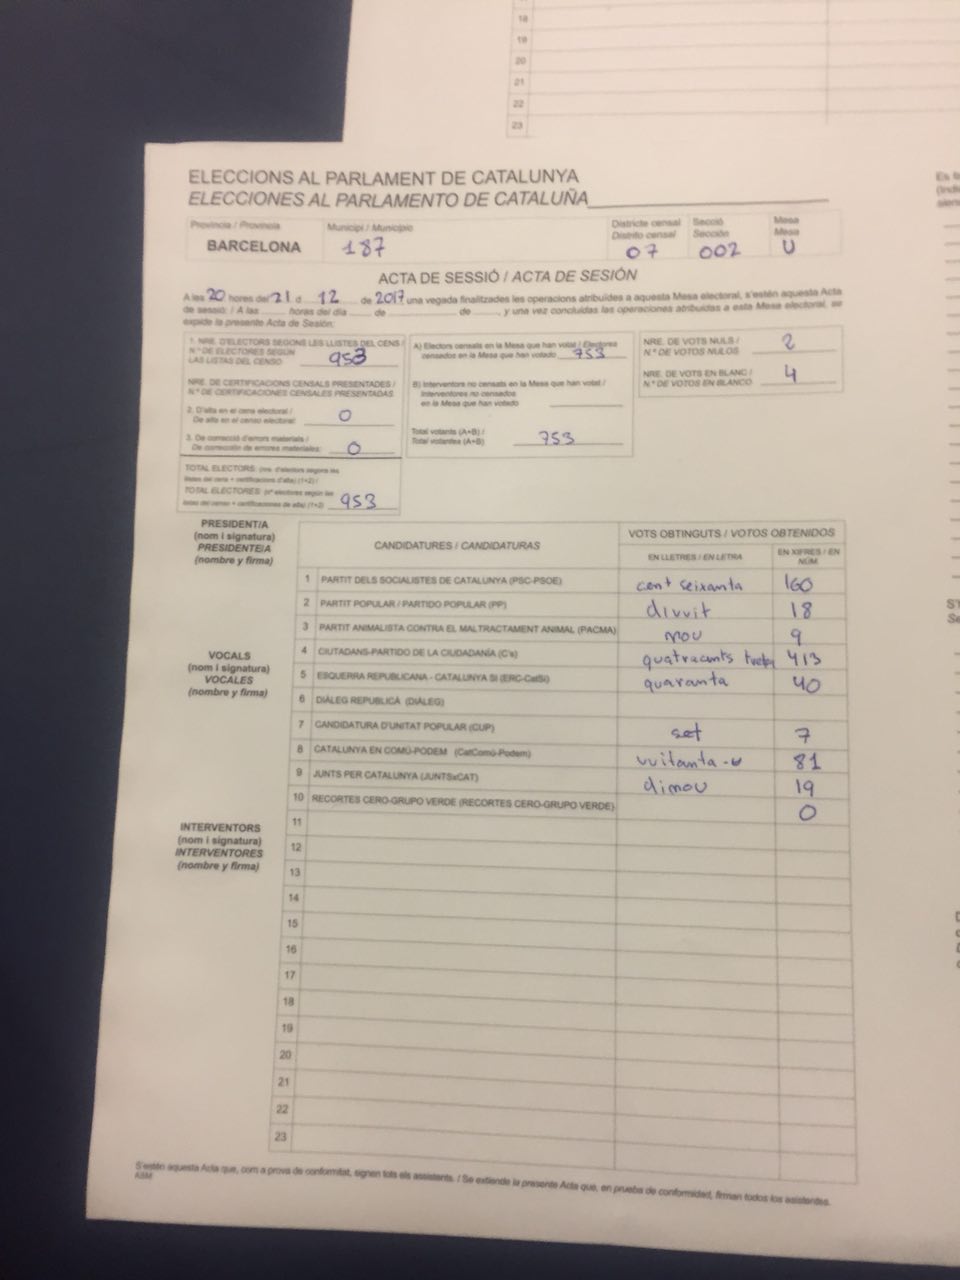 18
19
20
21
22
23
ELECCIONS AL PARLAMENT DE CATALUNYA
ELECCIONES AL PARLAMENTO DE CATALUÑA
Província / Provincia Municipi / Municipio Districte censal Secció Mesa
Distrito censal Sección Mesa
BARCELONA 187 07 002 U
ACTA DE SESSIÓ / ACTA DE SESIÓN
A les 20 hores del 21 d 12 de 2017 una vegada finalitzades les operacions atribuïdes a aquesta Mesa electoral, s'estén aquesta Acta
de sessió: / A las ........ horas del día ........ de ........ de ........, y una vez concluidas las operaciones atribuidas a esta Mesa electoral, se
expide la presente Acta de Sesión:
1. NRE. D'ELECTORS SEGONS LES LLISTES DEL CENS /
N.º DE ELECTORES SEGÚN
LAS LISTAS DEL CENSO 953
NRE. DE CERTIFICACIONS CENSALS PRESENTADES /
N.º DE CERTIFICACIONES CENSALES PRESENTADAS
2. D'alta en el cens electoral /
De alta en el censo electoral: 0
3. De correcció d'errors materials /
De corrección de errores materiales: 0
TOTAL ELECTORS: (nre. d'electors segons les
llistes del cens + certificacions d'alta) (1+2) /
TOTAL ELECTORES: (nº electores según las
listas del censo + certificaciones de alta) (1+2) 953
A) Electors censats en la Mesa que han votat / Electores
censados en la Mesa que han votado 753
B) Interventors no censats en la Mesa que han votat /
Interventores no censados
en la Mesa que han votado
Total votants (A+B) /
Total votantes (A+B) 753
NRE. DE VOTS NULS /
N.º DE VOTOS NULOS 2
NRE. DE VOTS EN BLANC /
N.º DE VOTOS EN BLANCO 4
PRESIDENT/A
(nom i signatura)
PRESIDENTE/A
(nombre y firma)
VOCALS
(nom i signatura)
VOCALES
(nombre y firma)
INTERVENTORS
(nom i signatura)
INTERVENTORES
(nombre y firma)
CANDIDATURES / CANDIDATURAS VOTS OBTINGUTS / VOTOS OBTENIDOS
EN LLETRES / EN LETRA EN XIFRES / EN
NÚM.
1 PARTIT DELS SOCIALISTES DE CATALUNYA (PSC-PSOE) cent seixanta 160
2 PARTIT POPULAR / PARTIDO POPULAR (PP) divuit 18
3 PARTIT ANIMALISTA CONTRA EL MALTRACTAMENT ANIMAL (PACMA) nou 9
4 CIUTADANS-PARTIDO DE LA CIUDADANÍA (C's) quatracents 413
5 ESQUERRA REPUBLICANA - CATALUNYA SÍ (ERC-CatSí) quaranta 40
6 DIÀLEG REPUBLICÀ (DIÀLEG)
7 CANDIDATURA D'UNITAT POPULAR (CUP) set 7
8 CATALUNYA EN COMÚ-PODEM (CatComú-Podem) vuitanta-u 81
9 JUNTS PER CATALUNYA (JUNTSxCAT) dinou 19
10 RECORTES CERO-GRUPO VERDE (RECORTES CERO-GRUPO VERDE) 0
11
12
13
14
15
16
17
18
19
20
21
22
23
S'estén aquesta Acta que, com a prova de conformitat, signen tots els assistents. / Se extiende la presente Acta que, en prueba de conformidad, firman todos los asistentes.